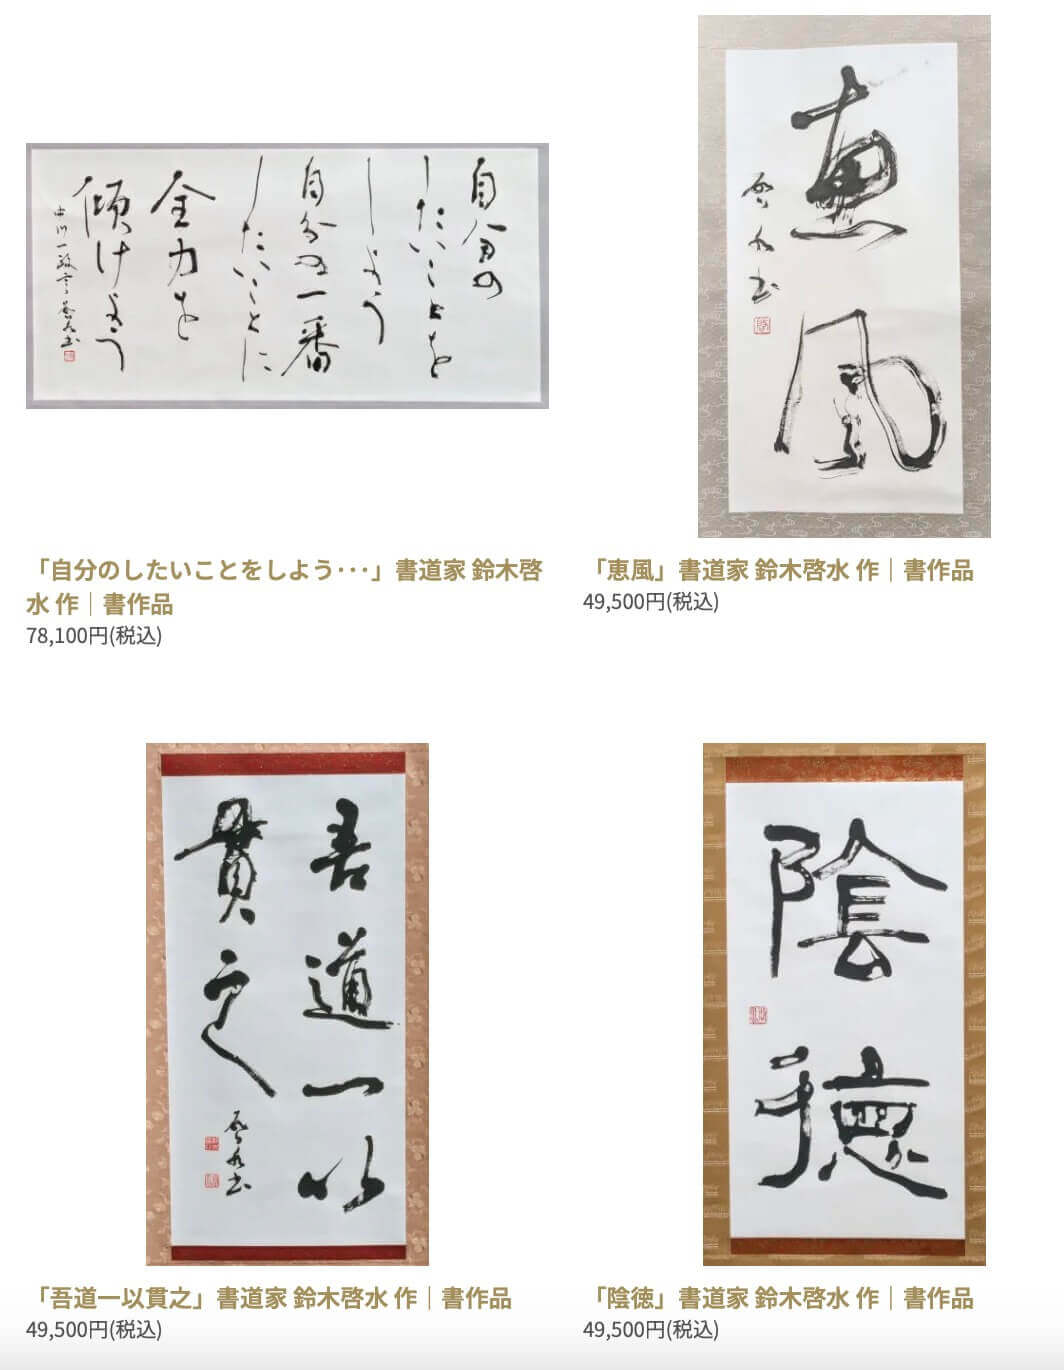 自分の
したいことを
しよう
自分の一番
したいことに
全力を
傾けよう
中川一政言 啓水書
「自分のしたいことをしよう･･･」書道家 鈴木啓
水 作｜書作品
78,100円(税込)
恵風
啓水書
「恵風」書道家 鈴木啓水 作｜書作品
49,500円(税込)
吾道一以
貫之
啓水書
「吾道一以貫之」書道家 鈴木啓水 作｜書作品
49,500円(税込)
陰徳
「陰徳」書道家 鈴木啓水 作｜書作品
49,500円(税込)